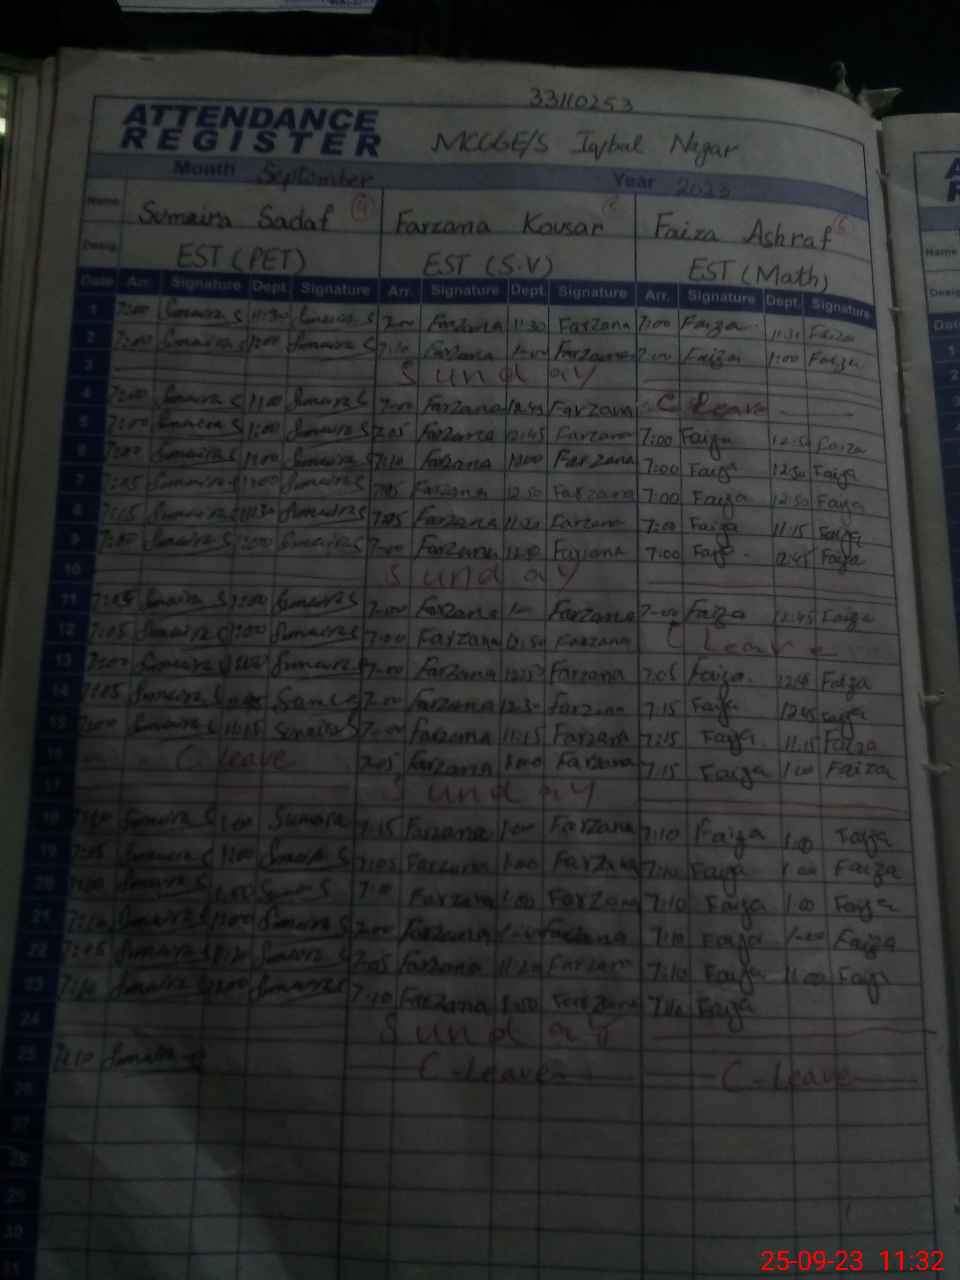 33110253
ATTENDANCE
REGISTER
MCGGE/S Iqbal Nagar
Month September Year 2023
Name Sumaira Sadaf 4 Farzana Kousar Faiza Ashraf
Desig. EST (PET) EST (S.V) EST (Math)
Date Arr. Signature Dept. Signature Arr. Signature Dept. Signature Arr. Signature Dept. Signature
1 7:00 Sumaira S 11:30 Sumaira S 7:00 Farzana 11:30 Farzana 7:00 Faiza 11:30 Faiza
2 7:00 Sumaira S 1:00 Sumaira S 7:10 Farzana 1:00 Farzana 7:00 Faiza 1:00 Faiza
3 Sunday
4 7:00 Sumaira S 1:00 Sumaira S 7:00 Farzana 12:45 Farzana C Leave
5 7:00 Sumaira S 1:00 Sumaira S 7:05 Farzana 12:45 Farzana 7:00 Faiza 12:50 Faiza
6 7:00 Sumaira S 1:00 Sumaira S 7:10 Farzana 1:00 Farzana 7:00 Faiza 12:50 Faiza
7 7:05 Sumaira S 1:00 Sumaira S 7:05 Farzana 12:50 Farzana 7:00 Faiza 12:50 Faiza
8 7:15 Sumaira S 11:30 Sumaira S 7:05 Farzana 11:20 Farzana 7:00 Faiza 11:15 Faiza
9 7:00 Sumaira S 1:00 Sumaira S 7:00 Farzana Farzana 7:00 Faiza 12:45 Faiza
10 Sunday
11 7:05 Sumaira S 1:00 Sumaira S 7:00 Farzana 1:00 Farzana 7:00 Faiza 12:45 Faiza
12 7:05 Sumaira S 1:00 Sumaira S 7:00 Farzana 12:50 Farzana C Leave
13 7:00 Sumaira S 1:00 Sumaira S 7:00 Farzana 12:50 Farzana 7:05 Faiza Faiza
14 7:05 Sumaira S Sumaira S 7:00 Farzana 12:30 Farzana 7:15 Faiza 12:45 Faiza
15 7:00 Sumaira S 11:15 Sumaira S 7:00 Farzana 11:15 Farzana 7:15 Faiza 11:15 Faiza
16 C leave 7:05 Farzana 1:00 Farzana 7:15 Faiza 1:00 Faiza
17 Sunday
18 Sumaira S 1:00 Sumaira 7:15 Farzana 1:00 Farzana 7:10 Faiza 1:00 Faiza
19 7:05 Sumaira S 1:00 Sumaira S 7:05 Farzana 1:00 Farzana 7:10 Faiza 1:00 Faiza
20 7:00 Sumaira S 1:00 Sumaira S 7:10 Farzana 1:00 Farzana 7:10 Faiza 1:00 Faiza
21 7:10 Sumaira S 1:00 Sumaira S 7:00 Farzana 1:00 Farzana 7:10 Faiza 1:00 Faiza
22 7:05 Sumaira S Sumaira S 7:05 Farzana 11:20 Farzana 7:10 Faiza 11:00 Faiza
23 7:10 Sumaira S 1:00 Sumaira S 7:10 Farzana 1:00 Farzana 7:10 Faiza
24 Sunday
25 7:10 Sumaira S C-Leave C-Leave
26
27
28
29
30
31
25-09-23 11:32